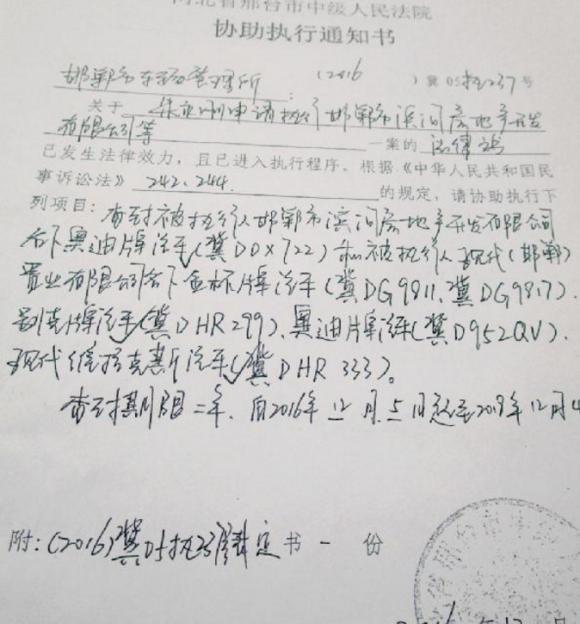 河北省邢台市中级人民法院
协助执行通知书
邯郸市车辆管理所：
（2016）冀05执237号
关于 申请执行邯郸市滨河房地产开发
有限公司等 一案的 法律
已发生法律效力，且已进入执行程序。根据《中华人民共和国民
事诉讼法》 242、244、 的规定，请协助执行下
列项目：查封被执行人邯郸市滨河房地产开发有限公司
名下奥迪牌汽车（冀D0X722）和被执行人现代（邯郸）
置业有限公司名下金杯牌汽车（冀DG9811、冀DG9817）、
别克牌汽车（冀DHR299）、奥迪牌汽车（冀D952QV）、
现代维拉克斯汽车（冀DHR333）。
查封期限二年，自2016年12月5日起至2018年12月4
附：（2016）冀05执237号裁定书一份